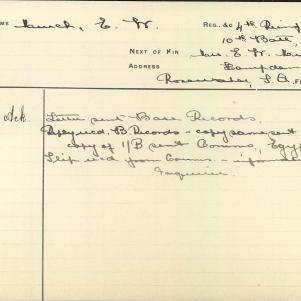 ME March, E. W. REG. &C 4th Rein
10th Batt
NEXT OF KIN Mrs. E. W. M
ADDRESS Campden
Rosewater, S. A.
Ack. Letter sent Base Records.
Reply recd. B Records - copy same sent
copy of 1/B sent Comms, Egyp
Slip recd from Comms. - inform
Inquirer.